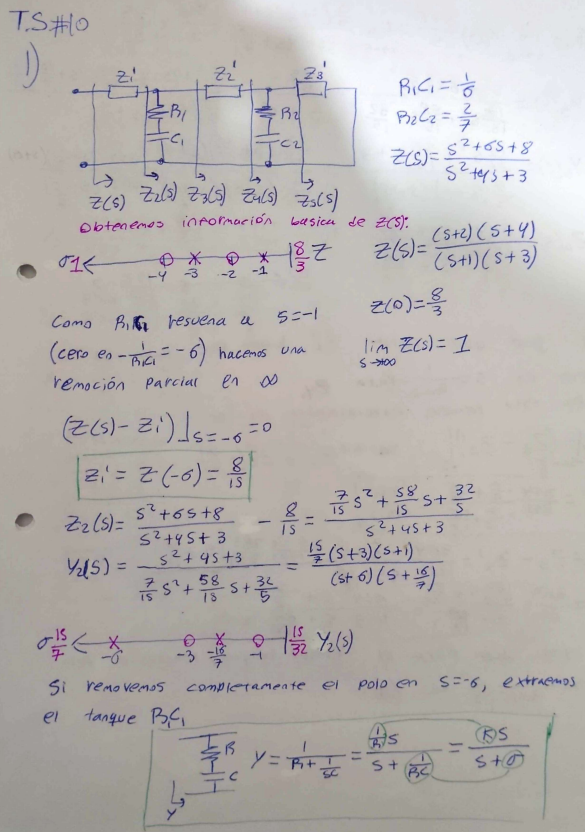 T.S#10
1)
Z1' Z2' Z3'
R1 R2
C1 C2
Z(s) Z2(s) Z3(s) Z4(s) Z5(s)
R1C1 = 1/6
R2C2 = 2/7
Z(s) = (s²+6s+8)/(s²+4s+3)
Obtenemos información basica de Z(s):
σ 1 -4 -3 -2 -1 8/3 Z
Z(s) = (s+2)(s+4)/((s+1)(s+3))
Z(0) = 8/3
lim s→∞ Z(s) = 1
Como R1C1 resuena a s=-1
(cero en -1/(R1C1) = -6) hacemos una
remoción parcial en ∞
(Z(s) - Z1')⌋s=-6 = 0
Z1' = Z(-6) = 8/15
Z2(s) = (s²+6s+8)/(s²+4s+3) - 8/15 = (7/15 s² + 58/15 s + 32/5)/(s²+4s+3)
Y2(s) = (s²+4s+3)/(7/15 s² + 58/15 s + 32/5) = 15/7 (s+3)(s+1)/((s+6)(s+16/7))
σ 15/7 -6 -3 -16/7 -1 15/32 Y2(s)
Si removemos completamente el polo en s=-6, extraemos
el tanque R1C1
R
C
Y
Y = 1/(R + 1/(sC)) = (1/R1 s)/(s + 1/(RC)) = Ks/(s+σ)